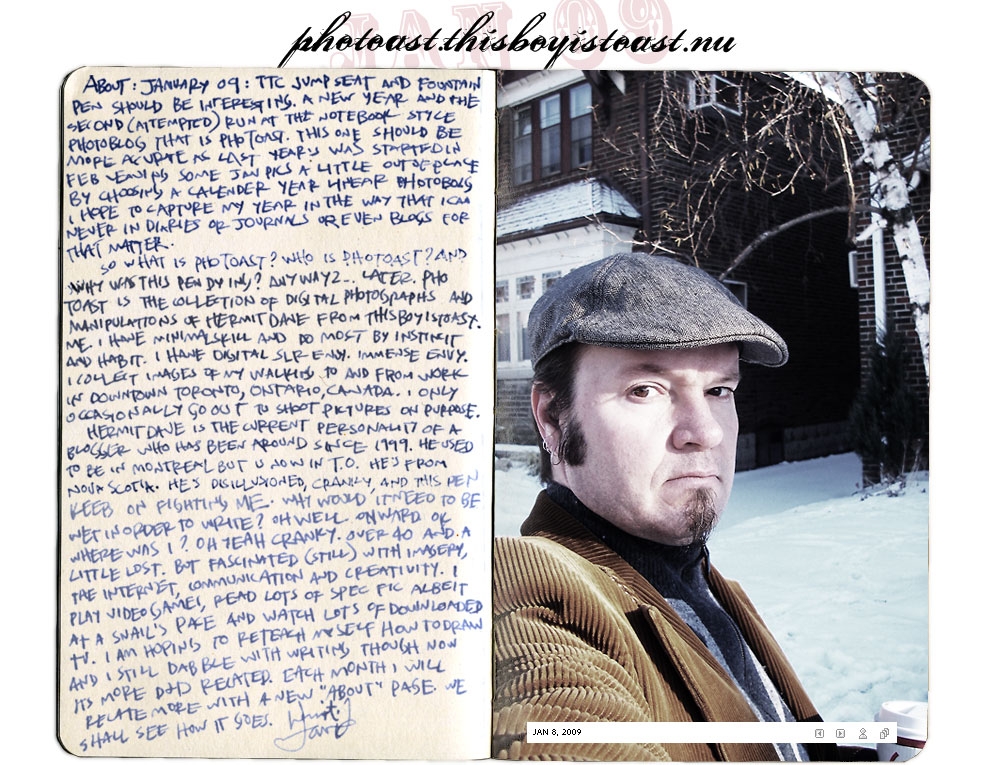 JAN 09
photoast.thisboyistoast.nu
ABOUT: JANUARY 09: TTC JUMP SEAT AND FOUNTAIN
PEN SHOULD BE INTERESTING. A NEW YEAR AND THE
SECOND (ATTEMPTED) RUN AT THE NOTEBOOK STYLE
PHOTOBLOG THAT IS PHOTOAST. THIS ONE SHOULD BE
MORE ACURATE AS LAST YEAR'S WAS STARTED IN
FEB LEAVING SOME JAN PICS A LITTLE OUT OF PLACE
BY CHOOSING A CALENDER YEAR LINEAR PHOTOBLOG
I HOPE TO CAPTURE MY YEAR IN THE WAY THAT I CAN
NEVER IN DIARIES OR JOURNALS OR EVEN BLOGS FOR
THAT MATTER.
SO WHAT IS PHOTOAST? WHO IS PHOTOAST? AND
WHY WAS THIS PEN DYING? ANYWAYZ... LATER. PHO
TOAST IS THE COLLETION OF DIGITAL PHOTOGRAPHS AND
MANIPULATIONS OF HERMITDAVE FROM THISBOYISTOAST.
ME. I HAVE MINIMAL SKILL AND DO MOST BY INSTINCT
AND HABIT. I HAVE DIGITAL SLR ENVY. IMMENSE ENVY.
I COLLECT IMAGES OF MY WALKING TO AND FROM WORK
IN DOWNTOWN TORONTO, ONTARIO, CANADA. I ONLY
OCCASIONALLY GO OUT TO SHOOT PICTURES ON PURPOSE.
HERMITDAVE IS THE CURRENT PERSONALITY OF A
BLOGGER WHO HAS BEEN AROUND SINCE 1999. HE USED
TO BE IN MONTREAL BUT IS NOW IN T.O. HE'S FROM
NOVA SCOTIA. HE'S DISILLUSIONED, CRANKY, AND THIS PEN
KEEB ON FIGHTING ME. WHY WOULD IT NEED TO BE
WET IN ORDER TO WRITE? OH WELL. ONWARD. OK
WHERE WAS I? OH YEAH CRANKY. OVER 40 AND A
LITTLE LOST. BUT FASCINATED (STILL) WITH IMAGERY,
THE INTERNET, COMMUNICATION AND CREATIVITY. I
PLAY VIDEOGAMES, READ LOTS OF SPEC FIC ALBEIT
AT A SNAIL'S PACE AND WATCH LOTS OF DOWNLOADED
TV. I AM HOPING TO RETEACH MYSELF HOW TO DRAW
AND I STILL DABBLE WITH WRITING THOUGH NOW
ITS MORE D+D RELATED. EACH MONTH I WILL
RELATE MORE WITH A NEW "ABOUT" PAGE. WE
SHALL SEE HOW IT GOES.
JAN 8, 2009